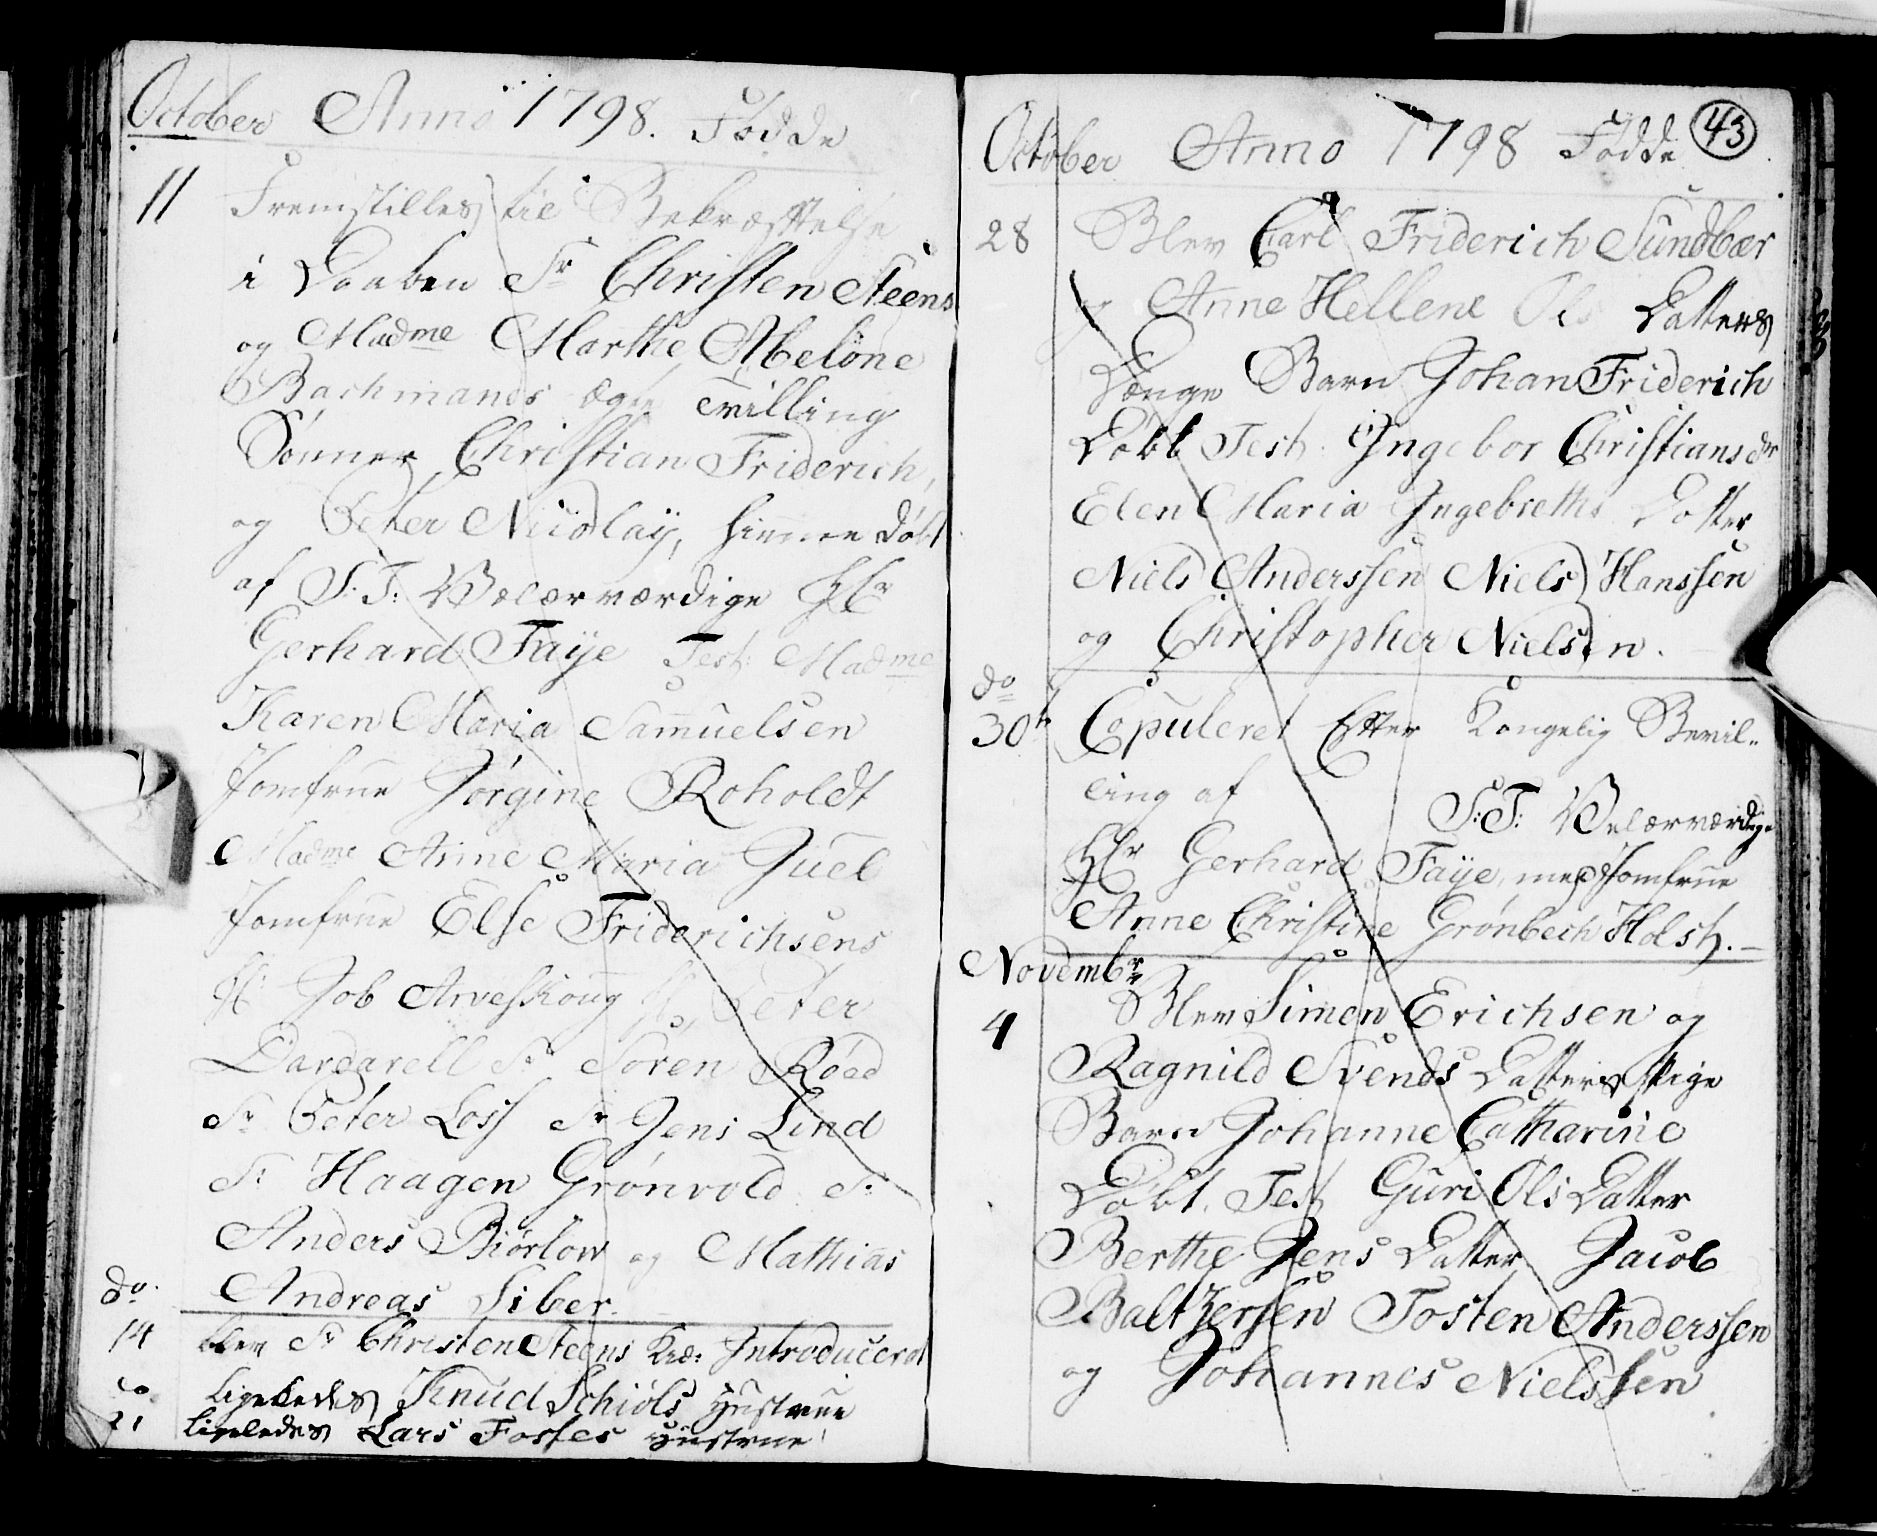 October Anno 1798. Fødde
11 Fremstilles til Bekræftelse
i Daaben Sr Christen Steens
og Madme Marthe Abelone
Bachmands ægte Tvilling
Sønner Christian Friderich,
og Peter Nicolay, hiemme døbt
af S: T: Velærværdige Hr
Gerhard Faÿe Test: Madme
Karen Maria Samuelsen
Jomfrue Jørgine Roholdt
Madme Anne Maria Juel
Jomfrue Else Friderichsens
Hr Job Arveskoug Hr Peter
Dardarell Sr Søren Røed
Sr Peter Loss Sr Jens Lind
Sr Haagen Grønvold Sr
Anders Biørlow og Mathias
Andreas Siber.
do
14 blev Sr Christen Steens Kone Introduceret
do ligeledes Knud Schiøls Hustrue
21 ligeledes Lars Fosses Hustrue
October Anno 1798 Fødde 43
28 Blev Carl Friderich Sundbær
og Anne Hellene Ols Datters
Dænge Barn Johan Friderich
Døbt Test: Ingebor Christiansdr
Elen Maria Ingebreths Datter
Niels Anderssen Niels Hanssen
og Christopher Nielsen.
do
30t Copuleret Efter Kongelig Bevil-
ling af S: T: Velærværdige
Hr Gerhard Faÿe, med Jomfrue
Anne Christine Grønbech Holst.
Novembr
4 Blev Simen Erichsen og
Ragnild Svends Datters Pige
Barn Johanne Catharine
Døbt. Test Guri Ols Datter
Berthe Jens Datter Jacob
Baltzersen Tosten Anderssen
og Johannes Nielssen